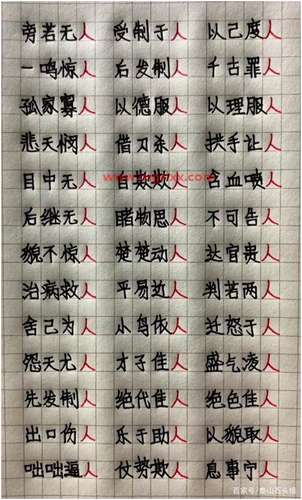 旁若无人 受制于人 以己度人
一鸣惊人 后发制人 千古罪人
孤家寡人 以德服人 以理服人
悲天悯人 借刀杀人 拱手让人
目中无人 自欺欺人 含血喷人
后继无人 睹物思人 不可告人
貌不惊人 楚楚动人 达官贵人
治病救人 平易近人 判若两人
舍己为人 小鸟依人 迁怒于人
怨天尤人 才子佳人 盛气凌人
先发制人 绝代佳人 绝色佳人
出口伤人 乐于助人 以貌取人
咄咄逼人 仗势欺人 息事宁人
百家号/泰山石头根